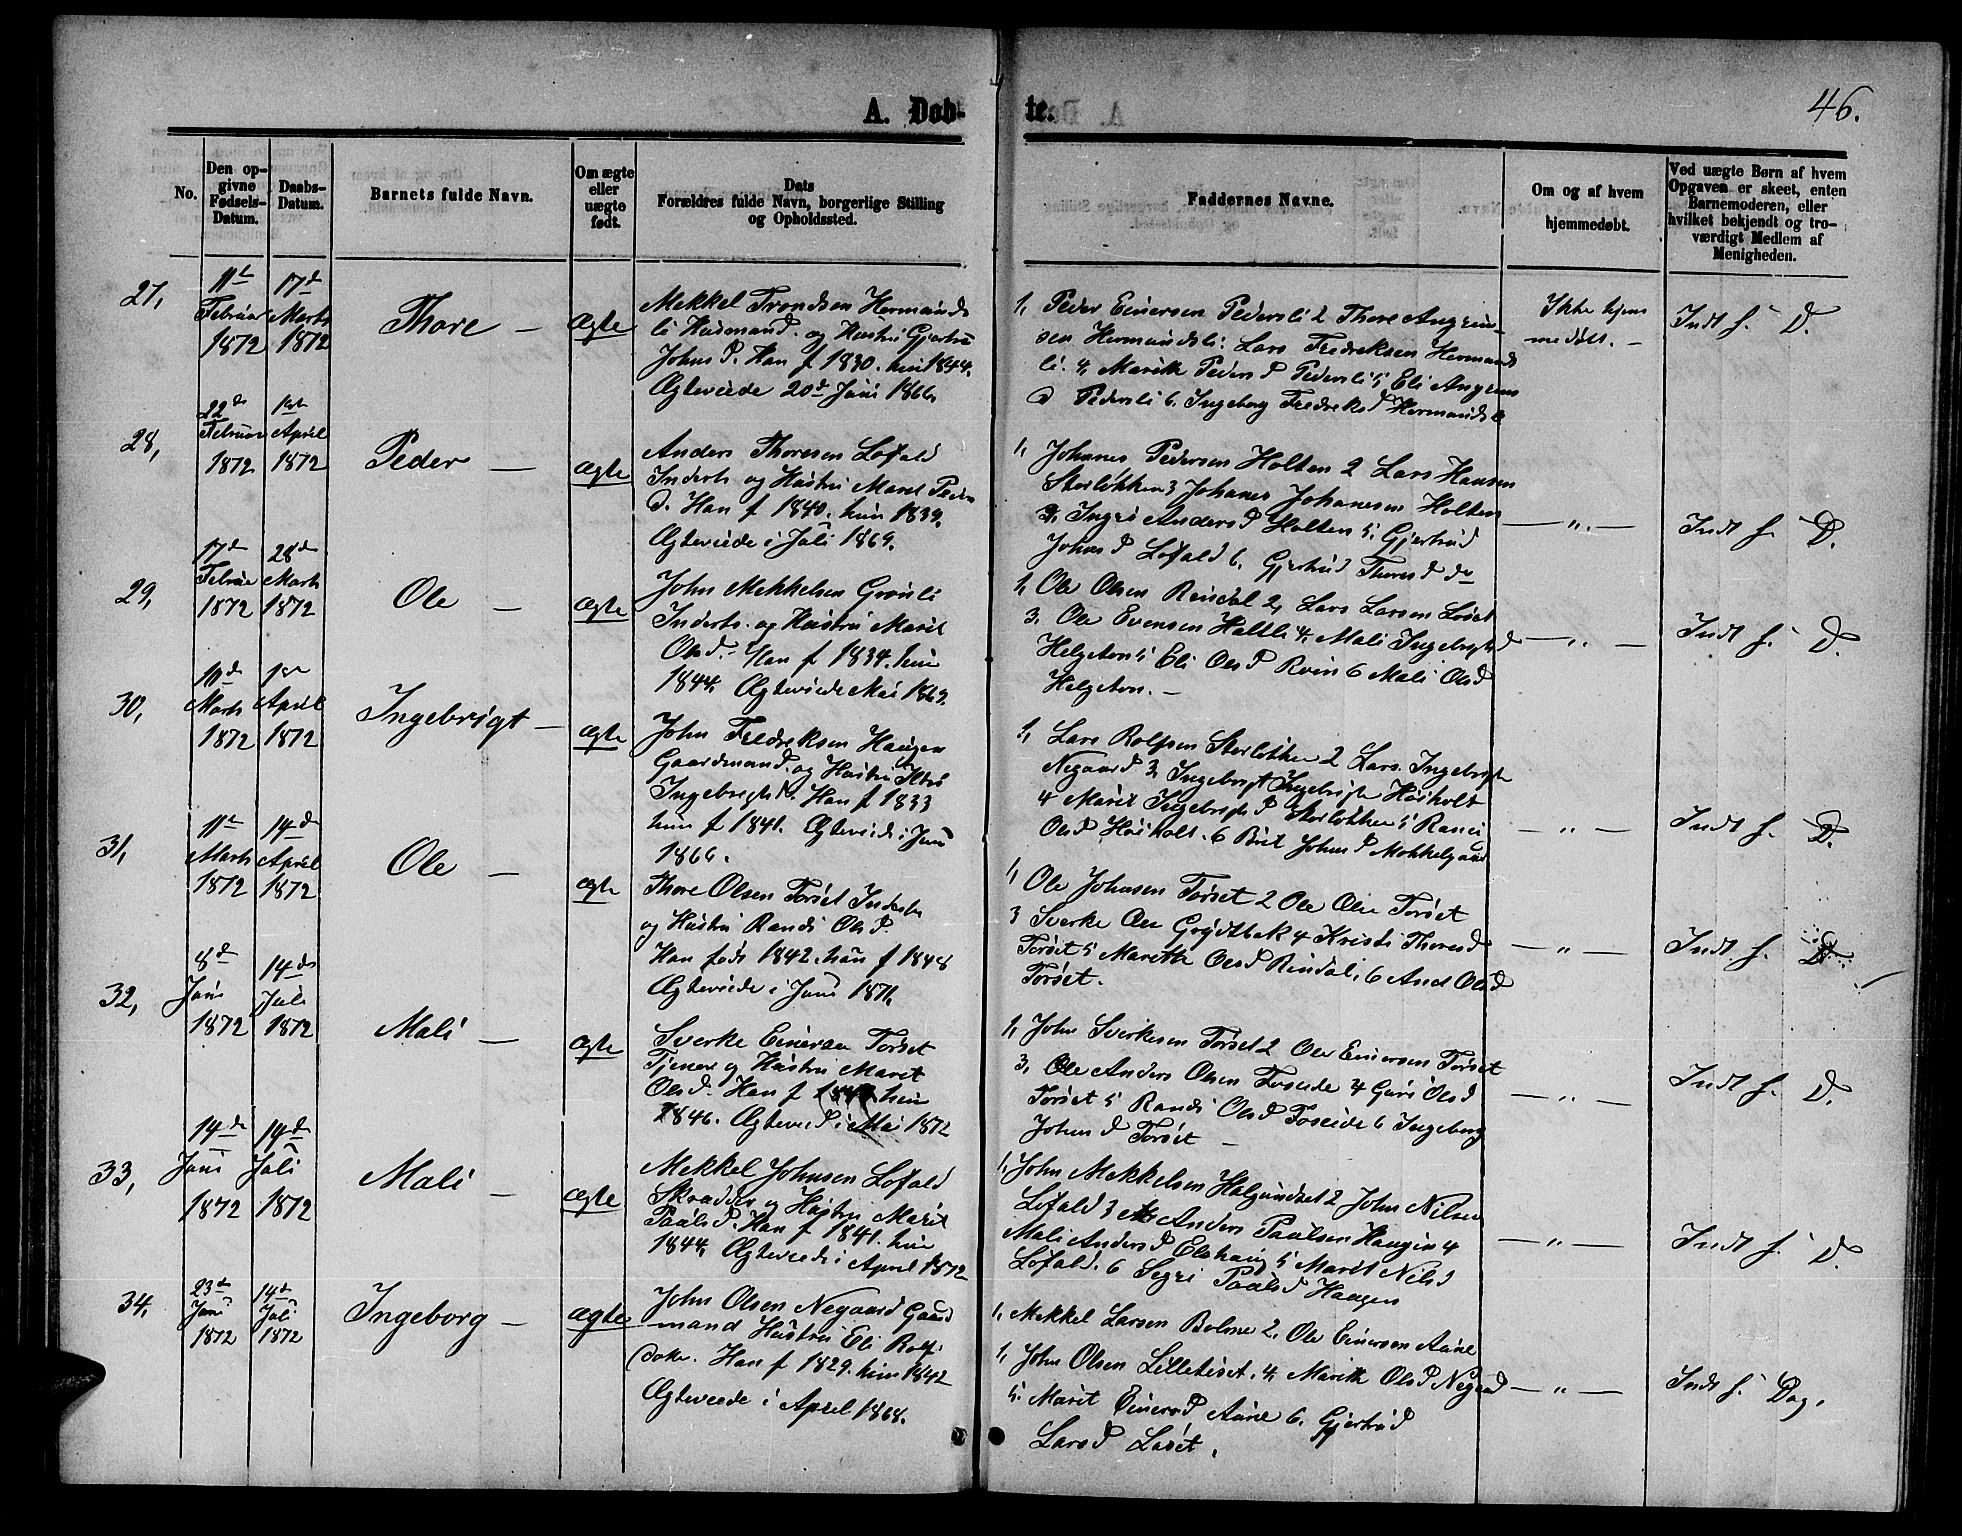 A. Døb-
te.
46.
No.
Den op-
givne
Fødsels-
Datum.
Daabs-
Datum.
Barnets fulde Navn.
Om ægte
eller
uægte
født.
Dats
Forældres fulde Navn, borgerlige Stilling
og Opholdssted.
Faddernes Navne.
Om og af hvem
hjemmedøbt.
Ved uægte Børn af hvem
Opgaven er skeet, enten
Barnemoderen, eller
hvilket bekjendt og tro-
værdigt Medlem af
Menigheden.
27,
11te
Februar
1872
17de
Marts
1872
Thore —
Ægte
Mekkel Trondsen Hermands
li Husmand. og Hustru Gjertru
Johns D. Han f 1830. hun 1844.
Ægteviede 20de Juni 1866.
1, Peder Einersen Pedersli 2 Thore Angrim-
sen Hermandsli. Lars Fredreksen Hermands
li. 4, Marith Peders D Pedersli 5 Eli Angrims
D Pedersli 6. Ingeborg Fredreks D Hermandsli
Ikke hjem
medøbt. —
Indt f. D.
28,
22de
Februar
1872
1ste
April
1872
Peder —
ægte
Anders Thoresen Løfald
Inderts og Hustru Maret Peders
D. Han f 1840. hun 1839.
Ægteviede i Juli 1869.
1, Johanes Pedersen Holten 2 Lars Hansen
Storløkken 3 Johanes Johanesen Holten
4, Ingri Anders D Holten 5, Gjertrud
Johns D Løfald 6, Gjertrud Thores D do
— " —
Indt f. D.
29,
17de
Februar
1872
28de
Marts
1872
Ole —
ægte
John Mekkelsen Grønli
Inderts. og Hustru Marit
Olsd. Han f 1834. hun
1844. Ægteviede Mai 1869.
1, Ole Olsen Rindal 2, Lars Larsen Løset
3. Ole Evensen Haltli 4, Mali Ingebrigts D
Helgeton 5 Eli Ols D Roen 6 Mali Ols D
Helgeton. —
— " —
Indt f. D.
30,
10de
Marts
1872
1ste
April
1872
Ingebrigt —
ægte
John Fredreksen Haugen
Gaardmand. og Hustru
Ingebrigts D. Han f 1833
hun f 1841. Ægteviede i Juni
1866.
1, Lars Rolfsen Storløkken 2 Lars Ingebrigts
Negaard 3, Ingebrigt Ingebrigts Høiholt
4 Marit Ingebrigts D Storløkken 5 Randi
Ols D Høiholt. 6 Brit Johns D Mokkelgaard
— " —
Indt f. D.
31,
11te
Marts
1872
14de
April
1872
Ole —
ægte
Thore Olsen Torset Inderts
og Hustru Randi Ols D.
Han føds 1842. hun f 1848
Ægteviede i Juni 1871.
1, Ole Johnsen Torset 2 Ole Olsen Torset
3 Sverke Olsen Grydtbak 4 Kristi Thores D
Torset 5 Marith Ols D Rindal, 6 And Ols D
Torset.
— " —
Indt f. D.
32,
8de
Juni
1872
14de
Juli
1872
Mali —
ægte
Sverke Einersen Torset
Tjener og Hustru Maret
Ols D. Han f hun
1846. Ægteviede i Mai 1872
1, John Sverkesen Torset 2 Ole Einersen Torset
3, Ole Anders Olsen Foseide 4 Guri Ols D
Torset 5 Randi Ols D Foseide 6 Ingeborg
Johns D Torset —
— " —
Indt f. D.
33,
14de
Juni
1872
14de
Juli
1872
Mali —
ægte
Mekkel Johnsen Løfald
Skradder og Hustru Marit
Paals D. Han f 1841. hun
1844, Ægteviede i April 1872
1, John Mekkelsen Halgundset 2 John Nilsen
Løfald 3 Anders Paulsen Haugen 4
Mali Anders D Elshaug 5 Maret Nils D
Løfald. 6 Segri Paals D Haugen
— " —
Indt f. D.
34,
23de
Juni
1872
14de
Juli
1872
Ingeborg —
ægte
John Olsen Negaard Gaard
mand Hustru Eli Rolfs
doter. Han f 1829. hun 1842
Ægteviede i April 1868.
1, Mekkel Larsen Bolme 2, Ole Einersen Aune
1, John Olsen Lilletiset. 4, Marith Ols D Negaard
5. Marit Einers D Aune 6. Gjertrud
Lars D Laset.
— " —
Indt f. Dag.